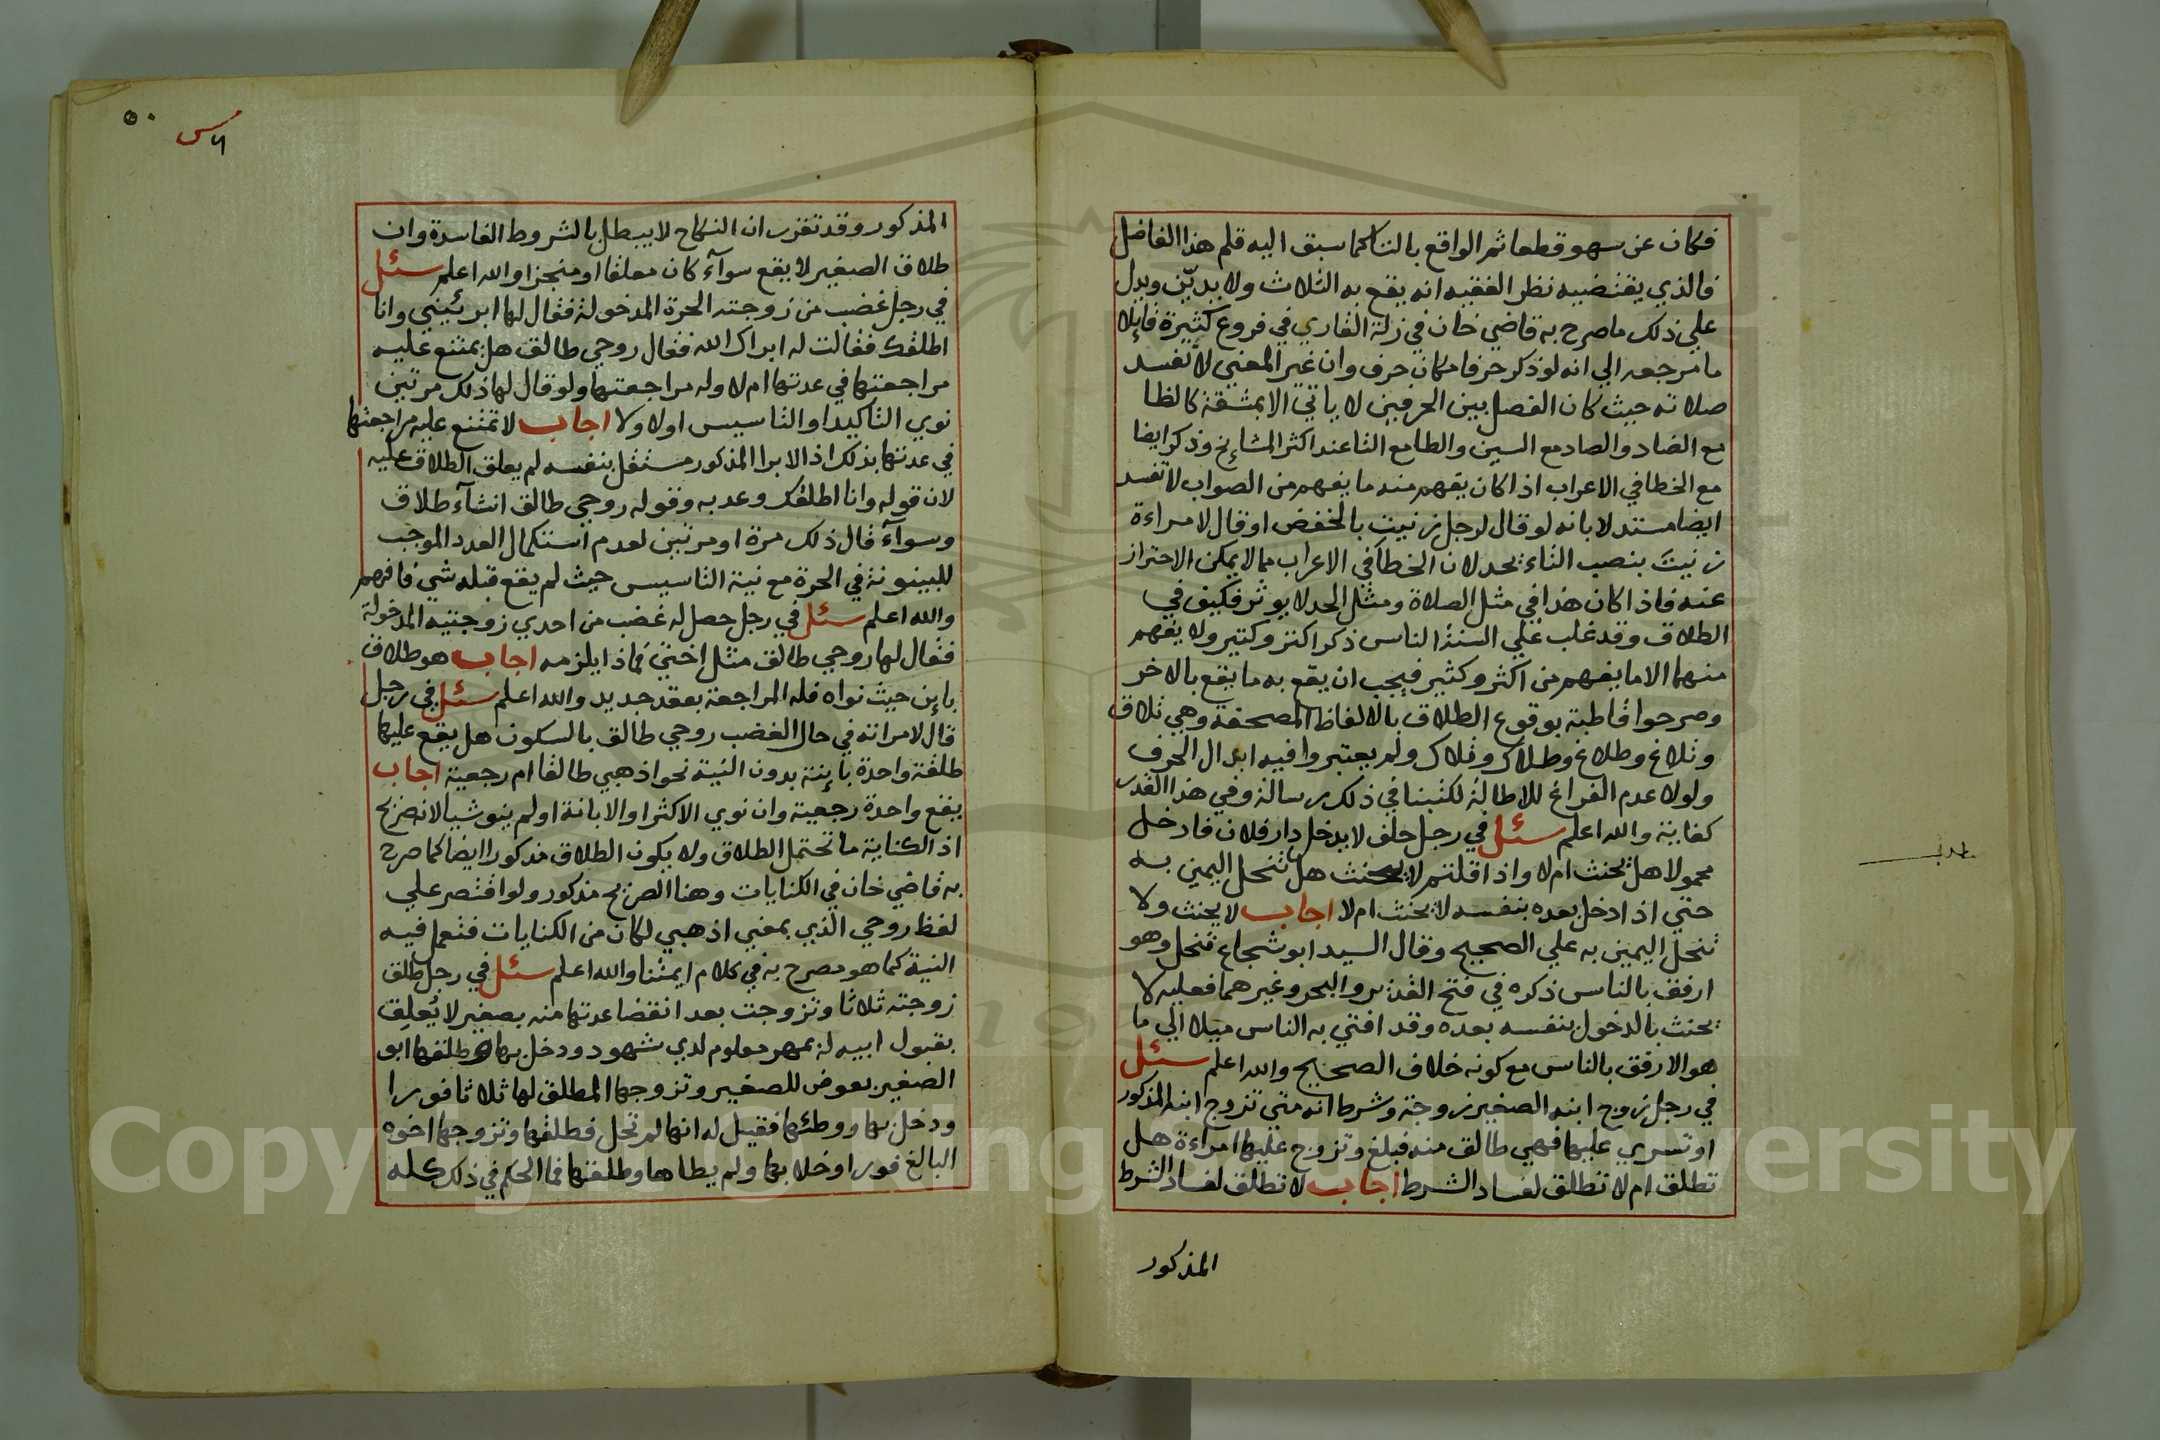 فكان عن سهو قطعا ثم الواقع بالتا كما سبق اليه قلم هذا الفاضل
فالذي يقتضيه نظر الفقيه انه يقع به الثلاث ولا يديّن ويدل
علي ذلك ما صرح به قاضي خان في زلة القاري في فروع كثيرة قايلا
ما مرجعه الي انه لو ذكر حرفا مكان حرف وان غير المعني لا تفسد
صلاته حيث كان الفصل بين الحرفين لا ياتي الا بمشقة كالظا
مع الضاد والصاد مع السين والطا مع التا عند اكثر المشايخ وذكر ايضا
مع الخطا في الاعراب اذا كان يفهم منه ما يفهم من الصواب لا تفسد
ايضا مستدلا بانه لو قال لرجل زنيت بالخفض او قال لامراءة
زنيتَ بنصب التاء يحد لان الخطا في الاعراب مما لا يمكن الاحتراز
عنه فاذا كان هذا في مثل الصلاة ومثل الحد لا يوثر فكيف في
الطلاق وقد غلب علي السنة الناس ذكر اكتر وكتير ولا يفهم
منهما الا ما يفهم من اكثر وكثير فيجب ان يقع به ما يقع بالاخر
وصرحوا قاطبة بوقوع الطلاق بالالفاظ المصحفة وهي تلاق
وتلاغ وطلاغ وطلاك وتلاك ولم يعتبروا فيه ابدال الحرف
ولولا عدم الفراغ للاطالة لكتبنا في ذلك رسالة وفي هذا القدر
كفاية والله اعلم سئل في رجل حلف لا يدخل دار فلان فادخل
محمولا هل يحنث ام لا واذا قلتم لا يحنث هل تنحل اليمين به
حتي اذا دخل بعده بنفسه لا يحنث ام لا اجاب لا يحنث ولا
تنحل اليمين به علي الصحيح وقال السيد ابو شجاع تنحل وهو
ارفق بالناس ذكره في فتح القدير والبحر وغيرهما فعليه لا
يحنث بالدخول بنفسه بعده وقد افتي به الناس ميلا الي ما
هو الارفق بالناس مع كونه خلاف الصحيح والله اعلم سئل
في رجل زوج ابنه الصغير زوجة وشرط انه متي تزوج ابنه المذكور
او تسري عليها فهي طالق منه فبلغ وتزوج عليها امراءة هل
تطلق ام لا تطلق لفساد الشرط اجاب لا تطلق لفساد الشرط
المذكور
مطلب
٥٠
المذكور وقد تقرر ان النكاح لا يبطل بالشروط الفاسدة وان
طلاق الصغير لا يقع سوآء كان معلقا او منجزا والله اعلم سئل
في رجل غضب من زوجته الحرة المدخولة فقال لها ابرئيني وانا
اطلقك فقالت له ابراك الله فقال روحي طالق هل يمتنع عليه
مراجعتها في عدتها ام لا وله مراجعتها ولو قال لها ذلك مرتين
نوي التاكيد او التاسيس اولا ولا اجاب لا تمتنع عليه مراجعتها
في عدتها بذلك اذ الابرا المذكور مستقل بنفسه لم يعلق الطلاق عليه
لان قوله وانا اطلقك وعد به وقوله روحي طالق انشآء طلاق
وسوآء قال ذلك مرة او مرتين لعدم استكمال العدد الموجب
للبينونة في الحرة مع نية التاسيس حيث لم يقع قبله شي فافهم
والله اعلم سئل في رجل حصل له غضب من احدي زوجتيه المدخولة
فقال لها روحي طالق مثل اختي فماذا يلزمه اجاب هو طلاق
باين حيث نواه فله المراجعة بعقد جديد والله اعلم سئل في رجل
قال لامراته في حال الغضب روحي طالق بالسكون هل يقع عليها
طلقة واحدة باينة بدون النية نحو اذهبي طالقا ام رجعية اجاب
يقع واحدة رجعية وان نوي الاكثر او الابانة او لم ينو شيا لانه صريح
اذ الكناية ما تحتمل الطلاق ولا يكون الطلاق مذكورا ايضا كما صرح
به قاضي خان في الكنايات وهنا الصريح مذكور ولو اقتصر علي
لفظ روحي الذي بمعني اذهبي لكان من الكنايات فتعمل فيه
النية كما هو مصرح به في كلام ايمتنا والله اعلم سئل في رجل طلق
زوجته ثلاثا وتزوجت بعد انقضا عدتها منه بصغير لا يُعلِق
بقبول ابيه له بمهر معلوم لدي شهود ودخل بها وطلقها ابو
الصغير بعوض للصغير وتزوجها المطلق لها ثلاثا فورا
ودخل بها ووطئها فقيل له انها لم تحل فطلقها وتزوجها اخوه
البالغ فورا وخلا بها ولم يطاها وطلقها فما الحكم في ذلك كله
Copyright © King Saud University